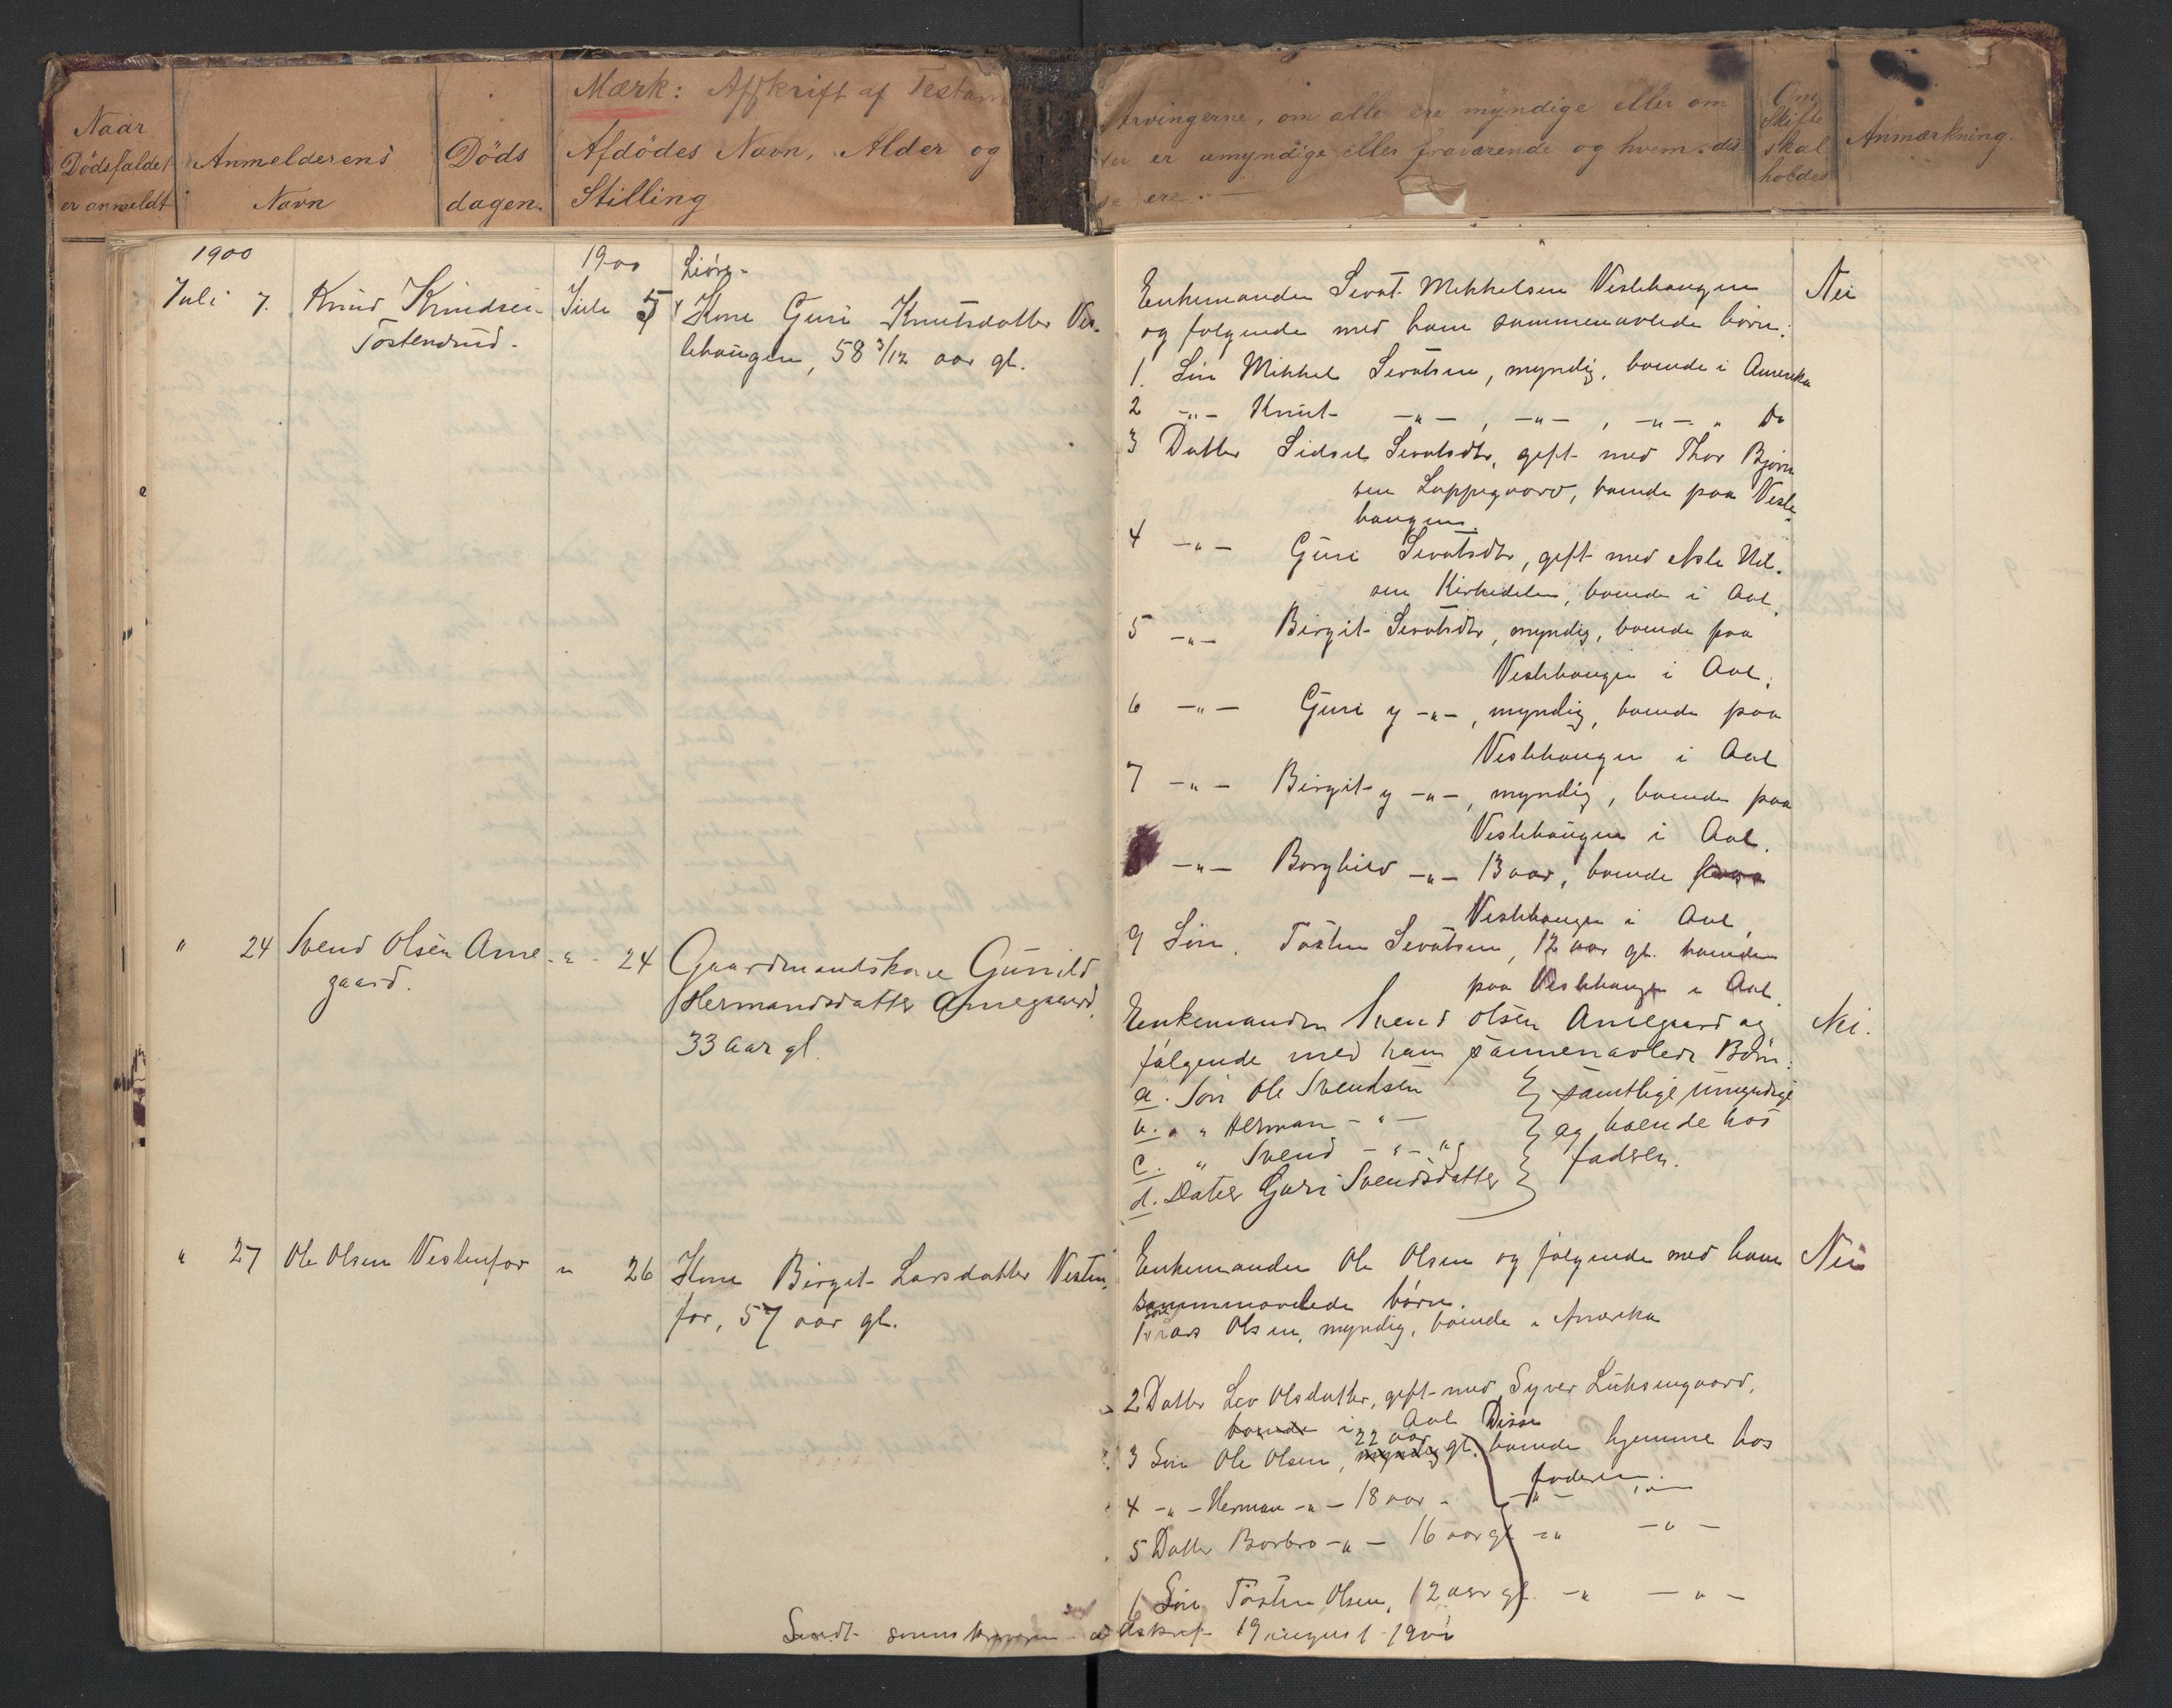 Naar
Dödsfaldet
er anmeldt
Anmelderens
Navn
Döds
dagen.
Mærk: Afskrift af Testam
Afdödes Navn, Alder og
Stilling
Arvingerne, om alle ere myndige eller om
der er umyndige eller fraværende og hvem dis
se ere.
Om
Skifte
skal
holdes
Anmærkning.
1900
Juli 7.
Knud Knudsen
Tostenrud.
1900
Juli 5
Kone Guri Knutsdatter Ves-
lehaugen, 58 3/12 aar gl.
Enkemanden Sevat Mikkelsen Veslehaugen
og følgende med ham sammenavlede børn:
1. Søn Mikkel Sevatsen, myndig, boende i Amerika
2 -"- Knut -"-, -"-, -"- " Do
3 Datter Sidsel Sevatsdtr, gift med Thor Bjørn
sen Lappegaard, boende paa Vesle
haugen.
4 -"- Guri Sevatsdtr, gift med Asle Nil-
sen Kirkedelen, boende i Aal.
5 -"- Birgit Sevatsdtr, myndig, boende paa
Veslehaugen i Aal.
6 -"- Guri y -"-, myndig, boende paa
Veslehaugen i Aal
7 -"- Birgit y -"-, myndig, boende paa
Veslehaugen i Aal.
-"- Borghild -"- 13 aar, boende paa
Veslehaugen i Aal
9 Søn. Tosten Sevatsen, 12 aar gl. boende
paa Veslehaugen i Aal.
Nei
" 24
Svend Olsen Arne-
gaard.
" 24
Gaardmandskone Gunild
Hermandsdatter Arnegaard,
33 aar gl.
Enkemanden Svend Olsen Arnegaard og
følgende med ham sammenavlede Børn:
a. Søn Ole Svendsen } samtlige umyndige
b. " Herman -"- } og boende hos
c. " Svend -"- og } faderen.
d. Datter Guri Svendsdatter }
Nei.
" 27
Ole Olsen Vestenfor
" 26
Kone Birgit Larsdatter Vesten-
for, 57 aar gl.
Enkemanden Ole Olsen og følgende med ham
sammenavlede børn.
1 Søn Lars Olsen, myndig, boende i Amerika
2 Datter Liv Olsdatter, gift med Syver
boende i Aal Disse
3 Søn Ole Olsen, myndig 22 aar gl. boende hjemme hos
faderen.
4 -"- Herman -"- 18 aar - -"-
5 Datter Barbro -"- 16 aar gl -"- -"-
6 Søn Tosten Olsen, 12 aar gl. -"- -"-
Nei
Sendt udskrift 19 august 1900